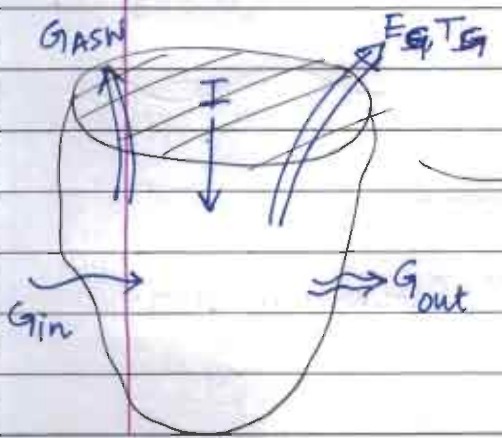 GASW
E_G, T_G
I
Gin
Gout